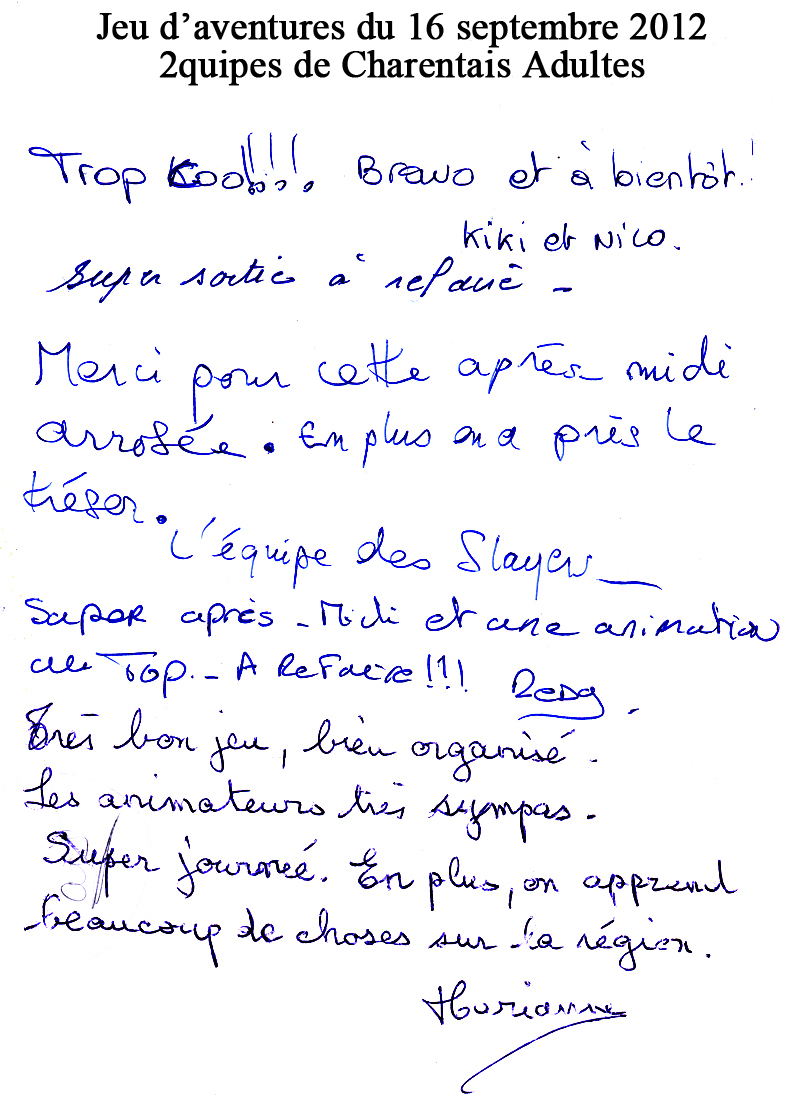 Jeu d’aventures du 16 septembre 2012
2quipes de Charentais Adultes
Trop Kool!!!. Bravo et à bientôt.!
Kiki et Nico.
Super sortie à refaire -
Merci pour cette après-midi
arrosée. En plus on a près le
trésor.
L'équipe des Slayers
Super après-Midi et une animation
au Top.- A Refaire!!!
Très bon jeu, bien organisé.
Les animateurs très sympas.
Super journée. En plus, on apprend
beaucoup de choses sur la région.